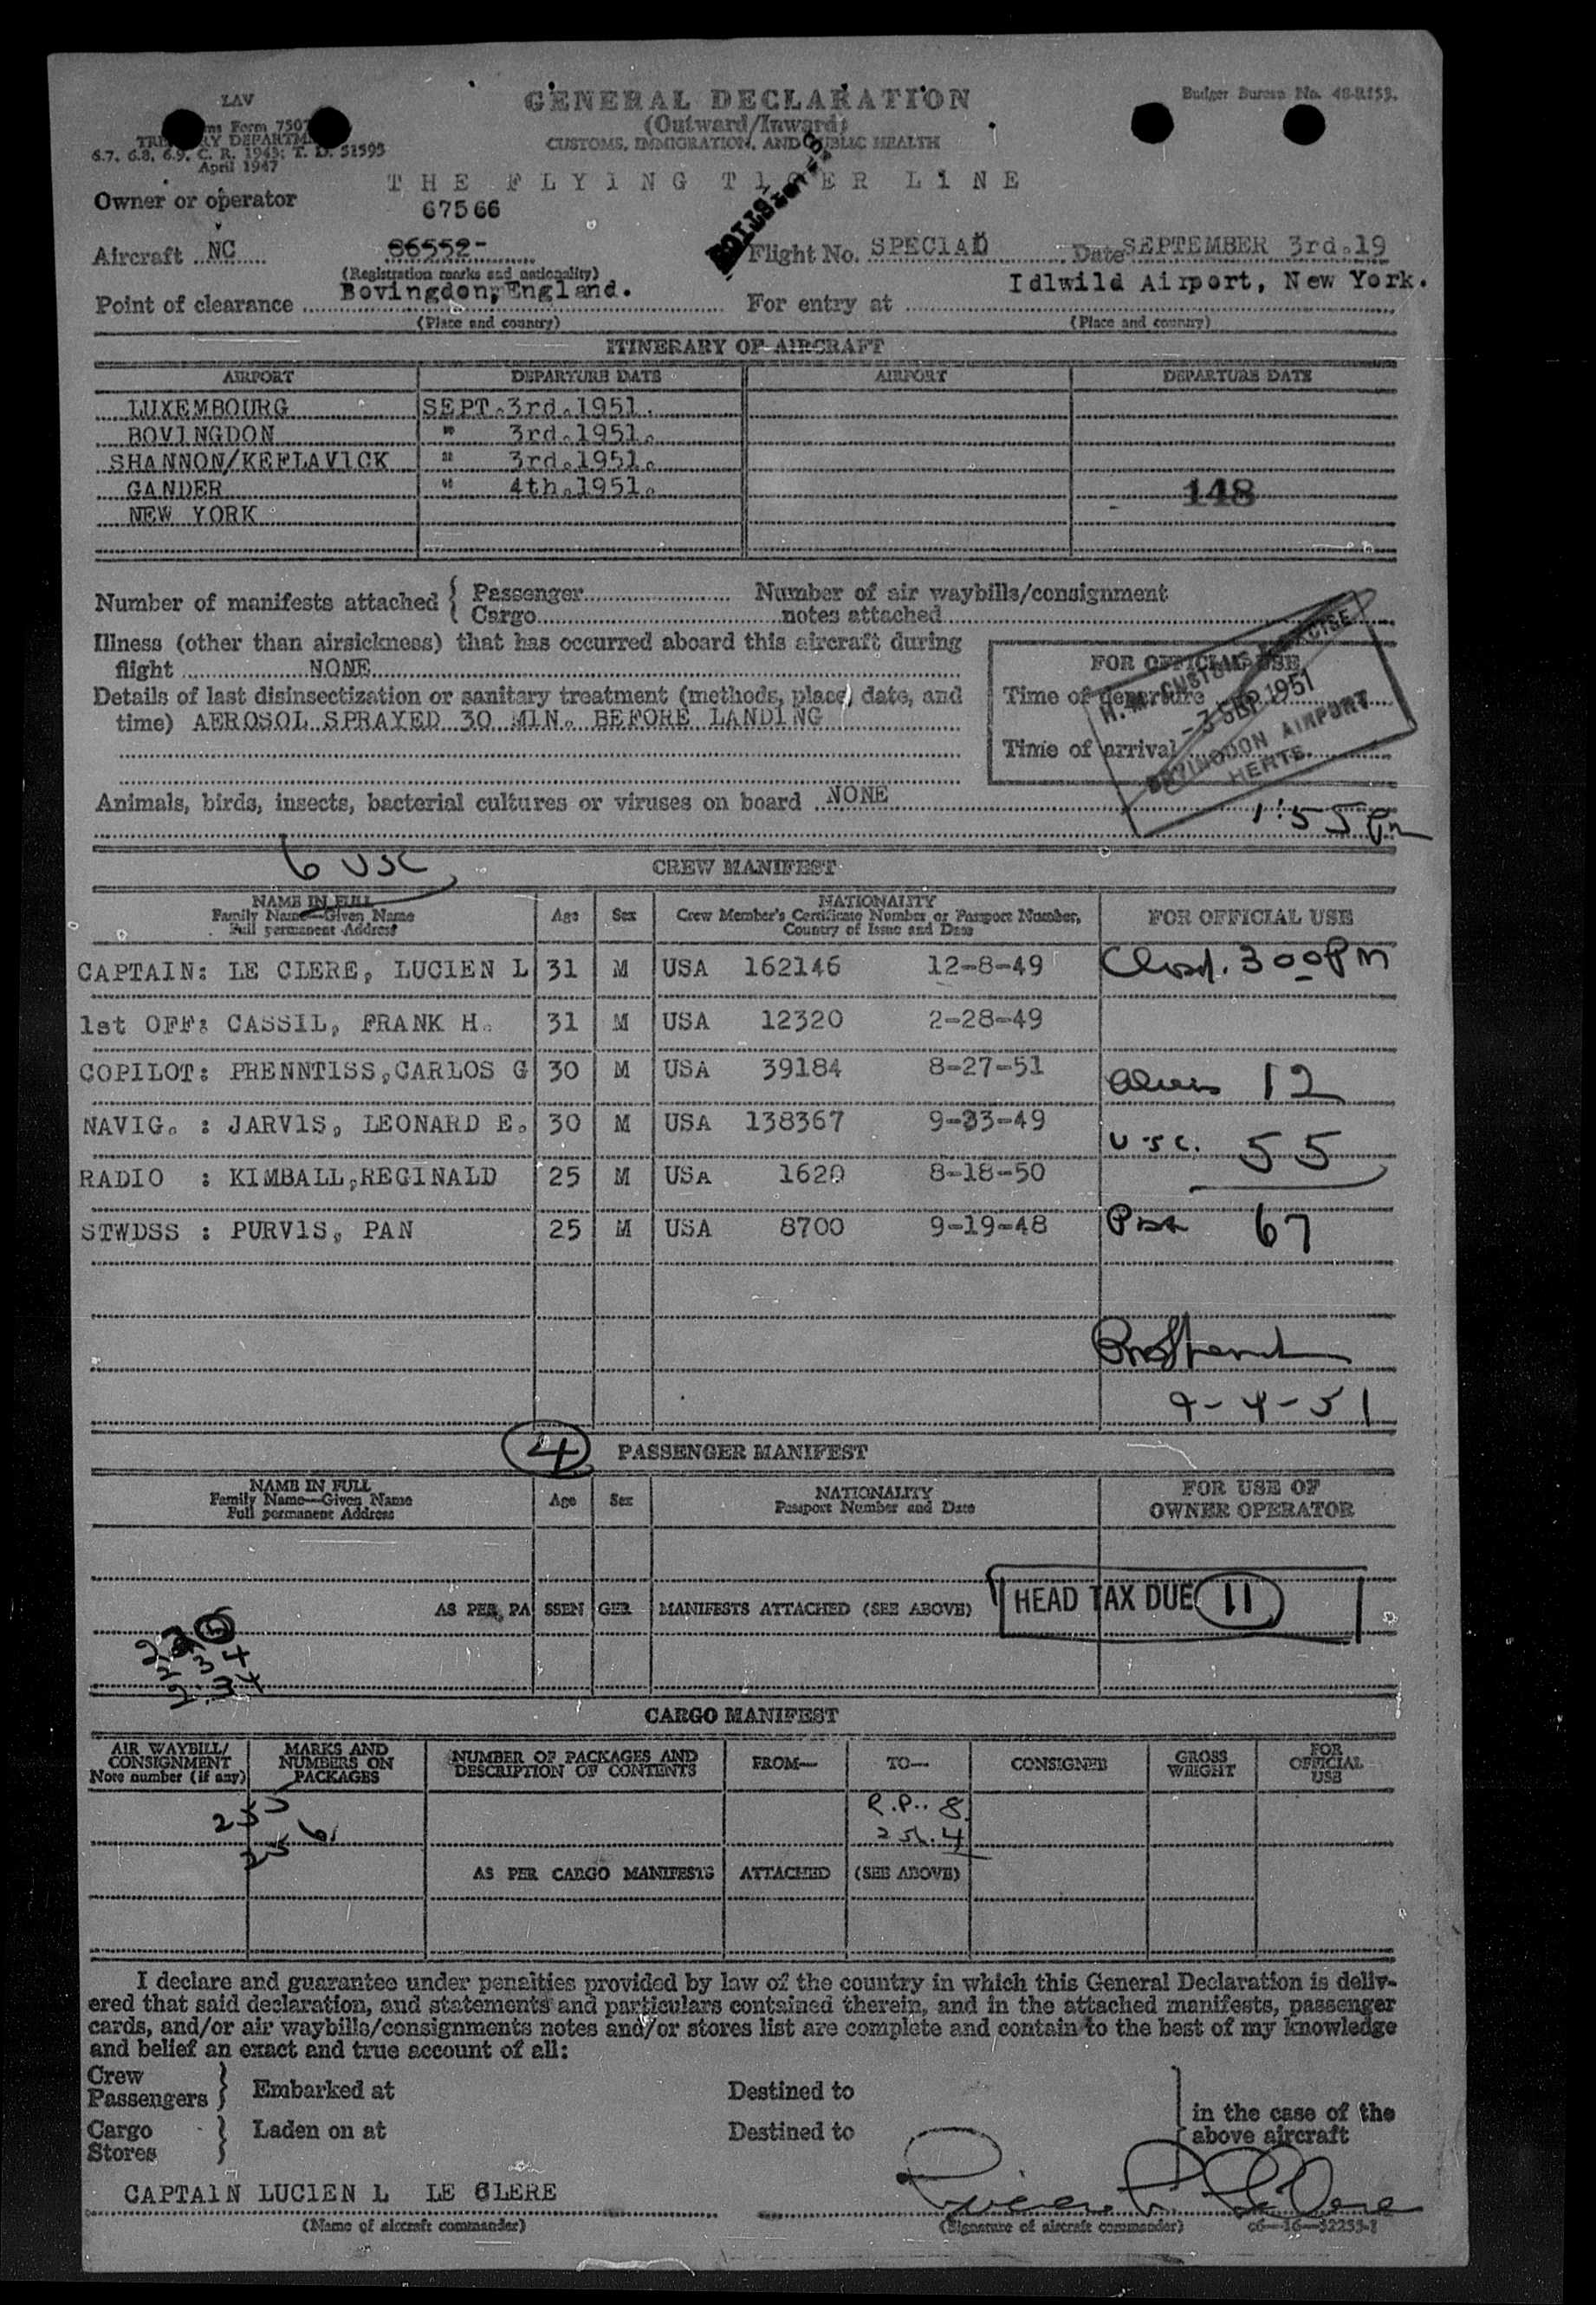 LAV
GENERAL DECLARATION
Budget Bureau No. 48-R153.
(Outward/Inward)
CUSTOMS, IMMIGRATION, AND PUBLIC HEALTH
Form 7507
TREASURY DEPARTMENT
6.7, 6.8, 6.9, C. R. 1943; T. D. 51595
April 1947
THE FLYING TIGER LINE
Owner or operator
67566
Aircraft NC 86552- Flight No. SPECIAL Date SEPTEMBER 3rd.19
(Registration marks and nationality)
Point of clearance Bovingdon, England. For entry at Idlwild Airport, New York.
(Place and country) (Place and country)
ITINERARY OF AIRCRAFT
AIRPORT DEPARTURE DATE AIRPORT DEPARTURE DATE
LUXEMBOURG SEPT.3rd.1951.
BOVINGDON " 3rd.1951.
SHANNON/KEFLAV1CK " 3rd.1951.
GANDER " 4th.1951. 148
NEW YORK
Number of manifests attached { Passenger Number of air waybills/consignment
Cargo notes attached
Illness (other than airsickness) that has occurred aboard this aircraft during
flight NONE
FOR OFFICIAL USE
Details of last disinsectization or sanitary treatment (methods, place, date, and
time) AEROSOL SPRAYED 30 M1N. BEFORE LAND1NG
Time of departure
Time of arrival
H. M. CUSTOMS & EXCISE
- 3 SEP 1951
BOVINGDON AIRPORT
HERTS.
Animals, birds, insects, bacterial cultures or viruses on board NONE
1:55 Pm
6 USC
CREW MANIFEST
NAME IN FULL
Family Name—Given Name
Full permanent Address
Age Sex
NATIONALITY
Crew Member's Certificate Number or Passport Number,
Country of Issue and Date
FOR OFFICIAL USE
CAPTAIN: LE CLERE, LUC1EN L 31 M USA 162146 12-8-49 Clrsd. 300PM
1st OFF: CASSIL, FRANK H. 31 M USA 12320 2-28-49
COPILOT: PRENNT1SS,CARLOS G 30 M USA 39184 8-27-51 Aliens 12
NAVIG. : JARV1S, LEONARD E. 30 M USA 138367 9-33-49 USC. 55
RADIO : KIMBALL,REGINALD 25 M USA 1620 8-18-50
STWDSS : PURV1S, PAN 25 M USA 8700 9-19-48 67
9-4-51
4
PASSENGER MANIFEST
NAME IN FULL
Family Name—Given Name
Full permanent Address
Age Sex
NATIONALITY
Passport Number and Date
FOR USE OF
OWNER OPERATOR
AS PER PASSENGER MANIFESTS ATTACHED (SEE ABOVE)
HEAD TAX DUE 11
CARGO MANIFEST
AIR WAYBILL/
CONSIGNMENT
Note number (if any)
MARKS AND
NUMBERS ON
PACKAGES
NUMBER OF PACKAGES AND
DESCRIPTION OF CONTENTS
FROM— TO— CONSIGNEE
GROSS
WEIGHT
FOR
OFFICIAL
USE
R.P.. 8
AS PER CARGO MANIFESTS ATTACHED (SEE ABOVE)
I declare and guarantee under penalties provided by law of the country in which this General Declaration is deliv-
ered that said declaration, and statements and particulars contained therein, and in the attached manifests, passenger
cards, and/or air waybills/consignments notes and/or stores list are complete and contain to the best of my knowledge
and belief an exact and true account of all:
Crew
Passengers } Embarked at Destined to
in the case of the
above aircraft
Cargo
Stores } Laden on at Destined to
CAPTA1N LUC1EN L LE CLERE
(Name of aircraft commander) (Signature of aircraft commander) c6—16—52253-1